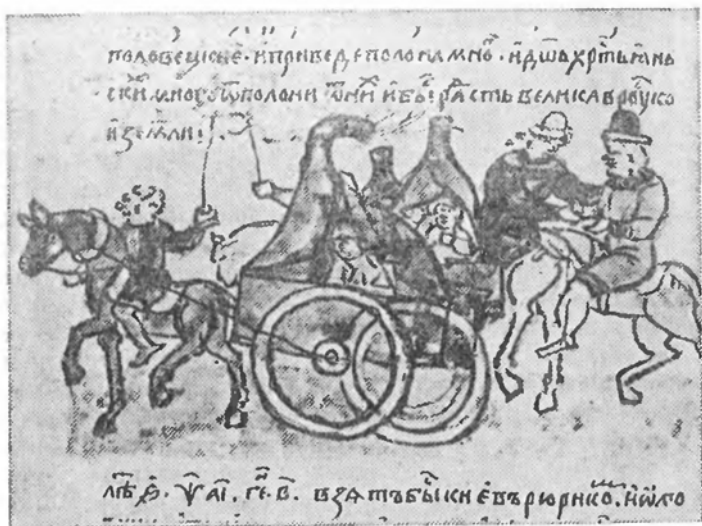 половецскиѣ · и приведе полона мноⷢ҇ · и дш҃ь хрⷭ҇тьꙗнь
скиⷯ мноⷢ҇ ѿполони ѿ ниⷯ и бы́ рⷣасть велика в роуско
и земли :
лѣⷮ · ѕ҃ · ѱ҃ аі · взѧтъ быⷭ҇ киѥвъ рюрикоⷨ · и ѡлго